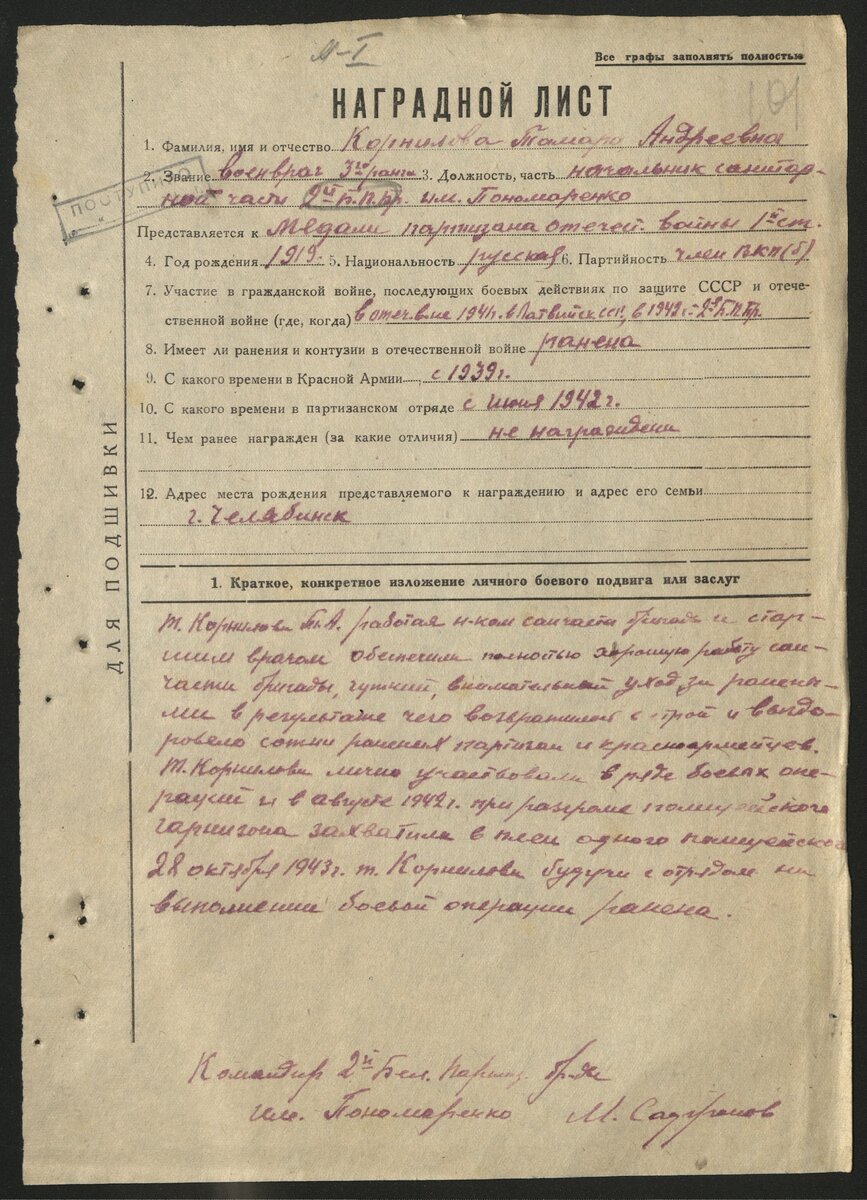 М-I
Все графы заполнять полностью
101
НАГРАДНОЙ ЛИСТ
1. Фамилия, имя и отчество Корнилова Тамара Андреевна
2. Звание военврач 3го ранга 3. Должность, часть начальник санитар-
ной части 2й Б.П.бр. им. Пономаренко
ПОСТУПИ
Представляется к Медали партизана отечей. войны 1й ст.
4. Год рождения 1919. 5. Национальность русская 6. Партийность член ВКП(б)
7. Участие в гражданской войне, последующих боевых действиях по защите СССР и отече-
ственной войне (где, когда) в отеч.войне 1941г. в Латвийск ССР, в 1942г. - 2я Б.П.бр.
8. Имеет ли ранения и контузии в отечественной войне ранена
9. С какого времени в Красной Армии с 1939г.
10. С какого времени в партизанском отряде с июня 1942г.
11. Чем ранее награжден (за какие отличия) не награждена
12. Адрес места рождения представляемого к награждению и адрес его семьи
г. Челябинск
ДЛЯ ПОДШИВКИ
1. Краткое, конкретное изложение личного боевого подвига или заслуг
Т. Корнилова Т.А. работая н-ком санчасти бригады и стар-
шим врачом обеспечила полностью хорошую работу сан-
части бригады, чуткий, внимательный уход за ранены-
ми в результате чего возвратилось в строй и выздо-
ровело сотни раненых партизан и красноармейцев.
Т. Корнилова лично участвовала в ряде боевых опе-
раций и в августе 1942г. при разгроме полицейского
гарнизона захватила в плен одного полицейского
28 октября 1943г. т. Корнилова будучи с отрядом на
выполнении боевой операции ранена.
Командир 2й Бел. Партиз. бр-ды
им. Пономаренко М. Сафронов